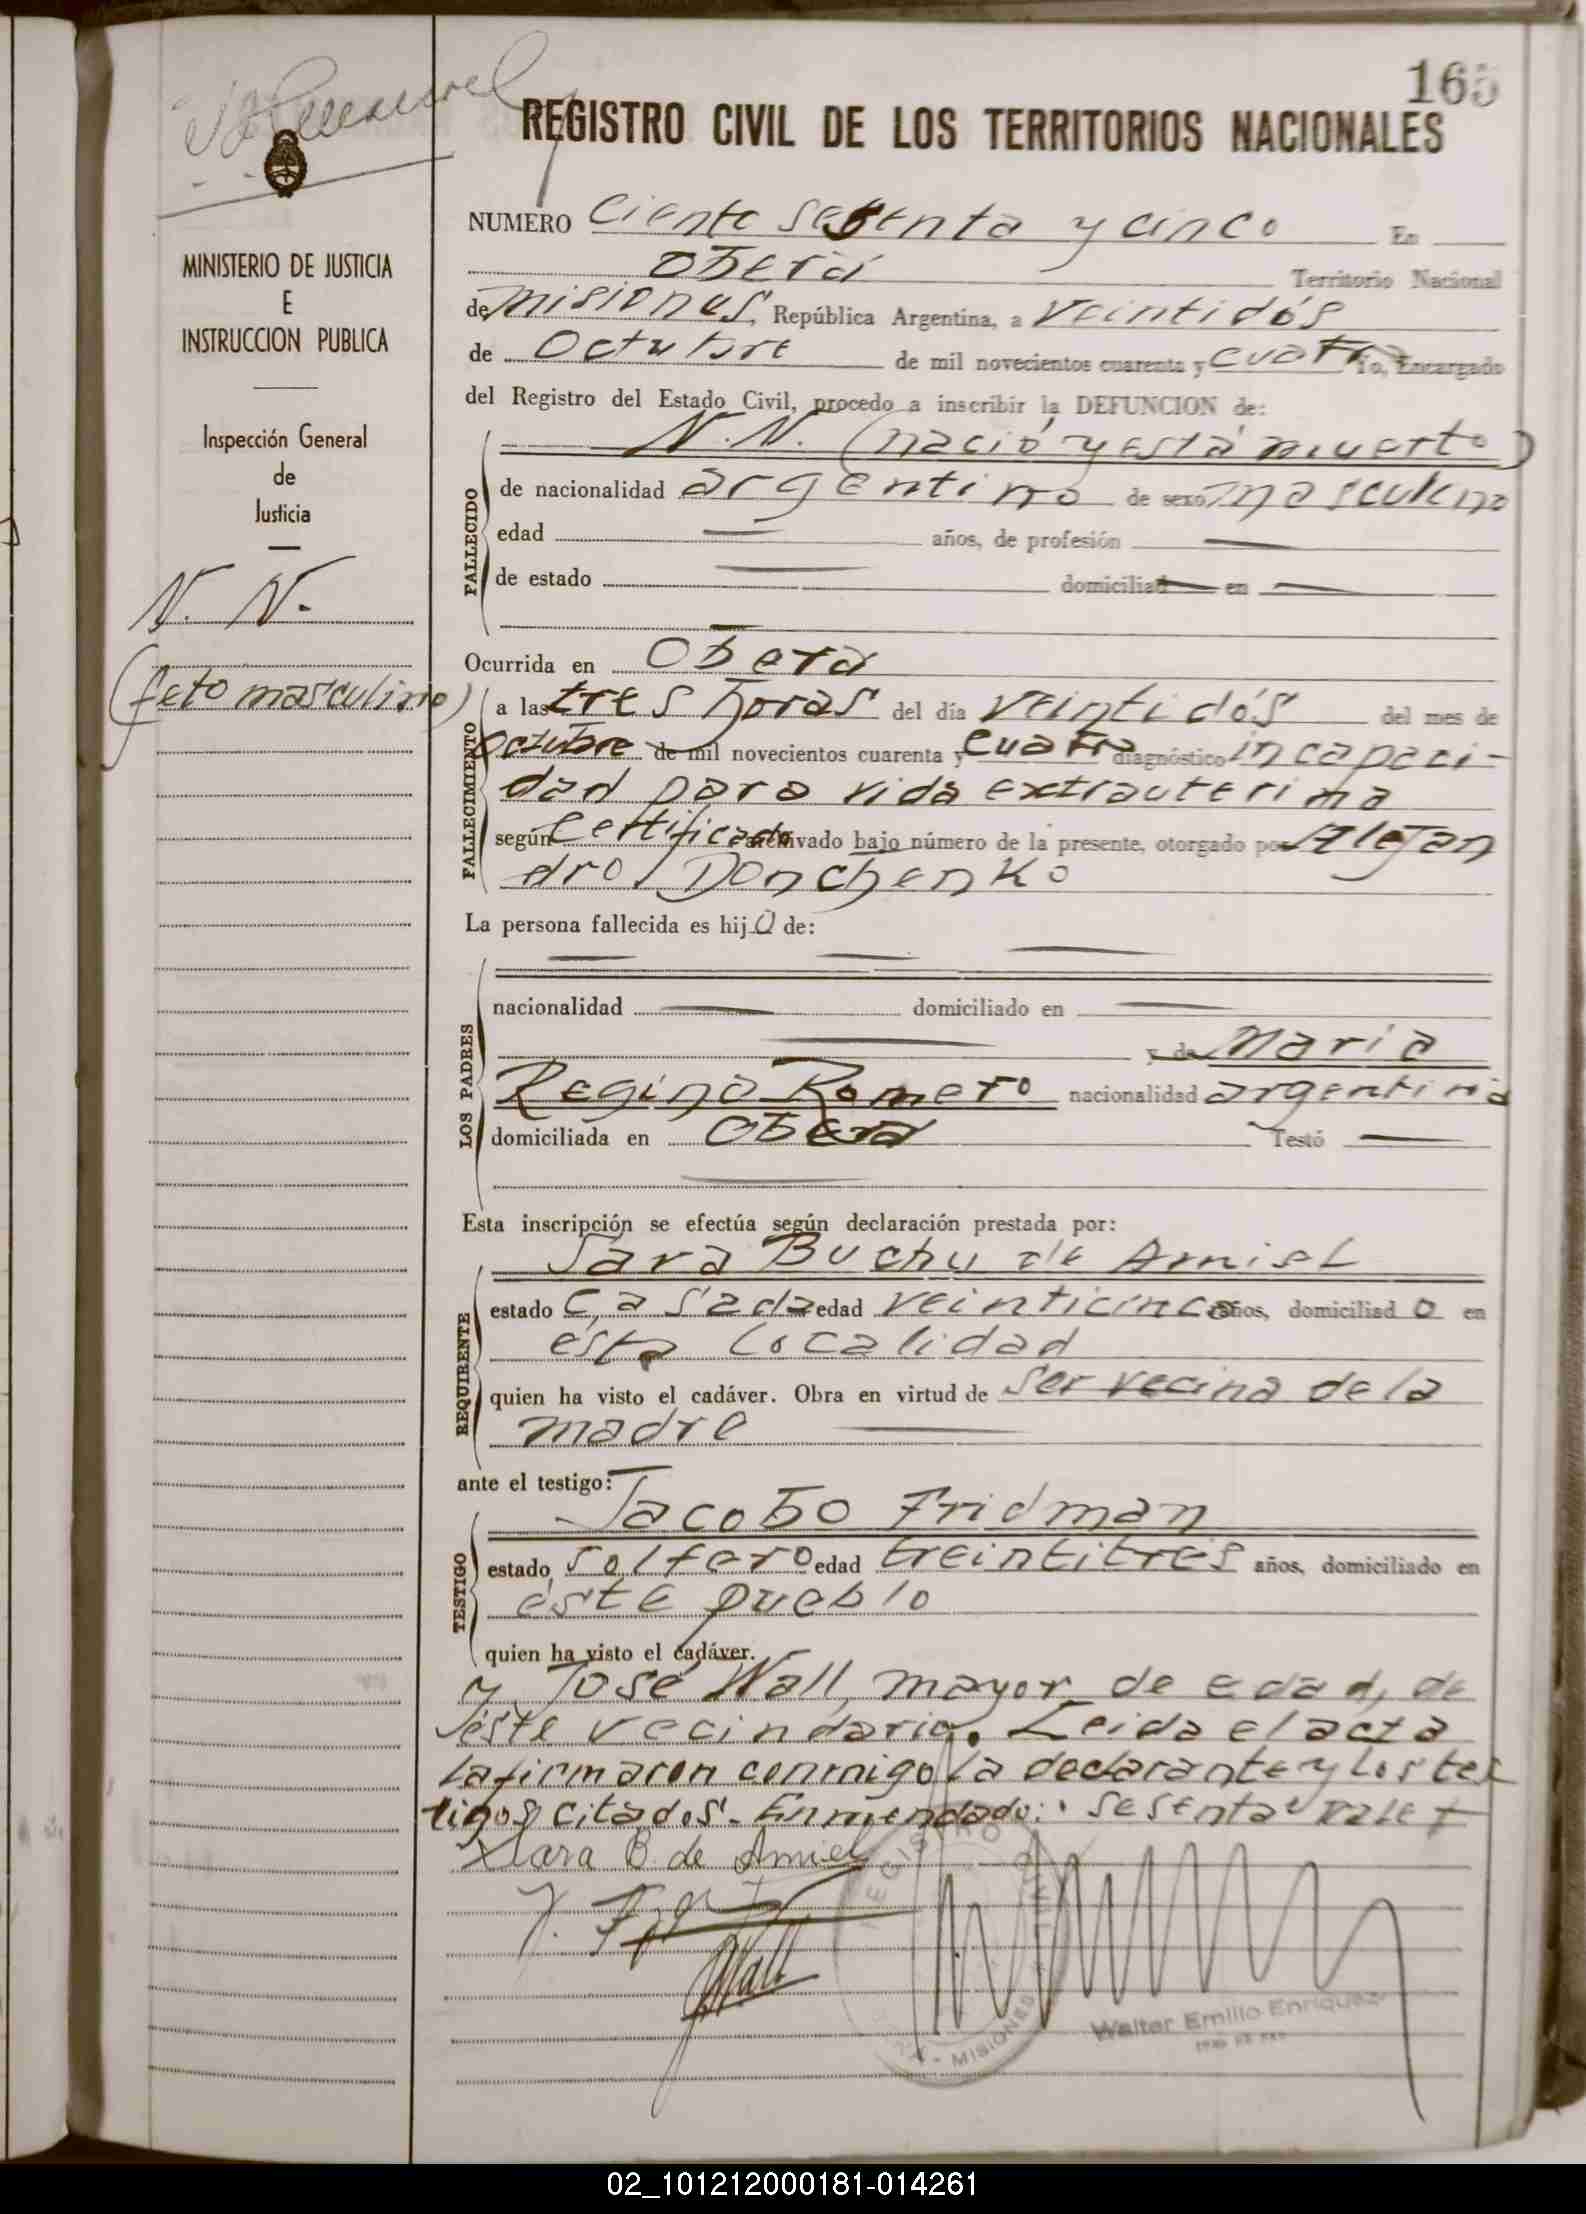 165
REGISTRO CIVIL DE LOS TERRITORIOS NACIONALES
MINISTERIO DE JUSTICIA
E
INSTRUCCION PUBLICA
Inspección General
de
Justicia
N. N.
(feto masculino)
NUMERO Ciento sesenta y cinco En
Oberá Territorio Nacional
de Misiones, República Argentina, a veintidós
de Octubre de mil novecientos cuarenta y cuatro Yo, Encargado
del Registro del Estado Civil, procedo a inscribir la DEFUNCION de:
N. N. (nació y está muerto)
FALLECIDO
de nacionalidad argentino de sexo masculino
edad — años, de profesión —
de estado — domiciliad — en —
Ocurrida en Oberá
FALLECIMIENTO
a las tres horas del día veintidós del mes de
Octubre de mil novecientos cuarenta y cuatro diagnóstico incapaci-
dad para vida extrauterina
según certificado archivado bajo número de la presente, otorgado por Alejan
dro Donchenko
La persona fallecida es hijo de:
LOS PADRES
nacionalidad — domiciliado en —
y de Maria
Regina Romero nacionalidad argentina
domiciliada en Oberá Testó —
Esta inscripción se efectúa según declaración prestada por:
Sara Buchu de Amiel
REQUIRENTE
estado casada edad veinticinco años, domiciliad o en
ésta localidad
quien ha visto el cadáver. Obra en virtud de ser vecina de la
madre
ante el testigo:
Jacobo Fridman
TESTIGO
estado soltero edad treintitrés años, domiciliado en
éste pueblo
quien ha visto el cadáver.
y José Wall, mayor de edad, de
éste vecindario. Leida el acta
la firmaron conmigo la declarante y los tes
tigos citados. Enmendado: "sesenta" vale
Sara B. de Amiel
Wall
REGISTRO CIVIL
MISIONES
Walter Emilio Enriquez
02_101212000181-014261